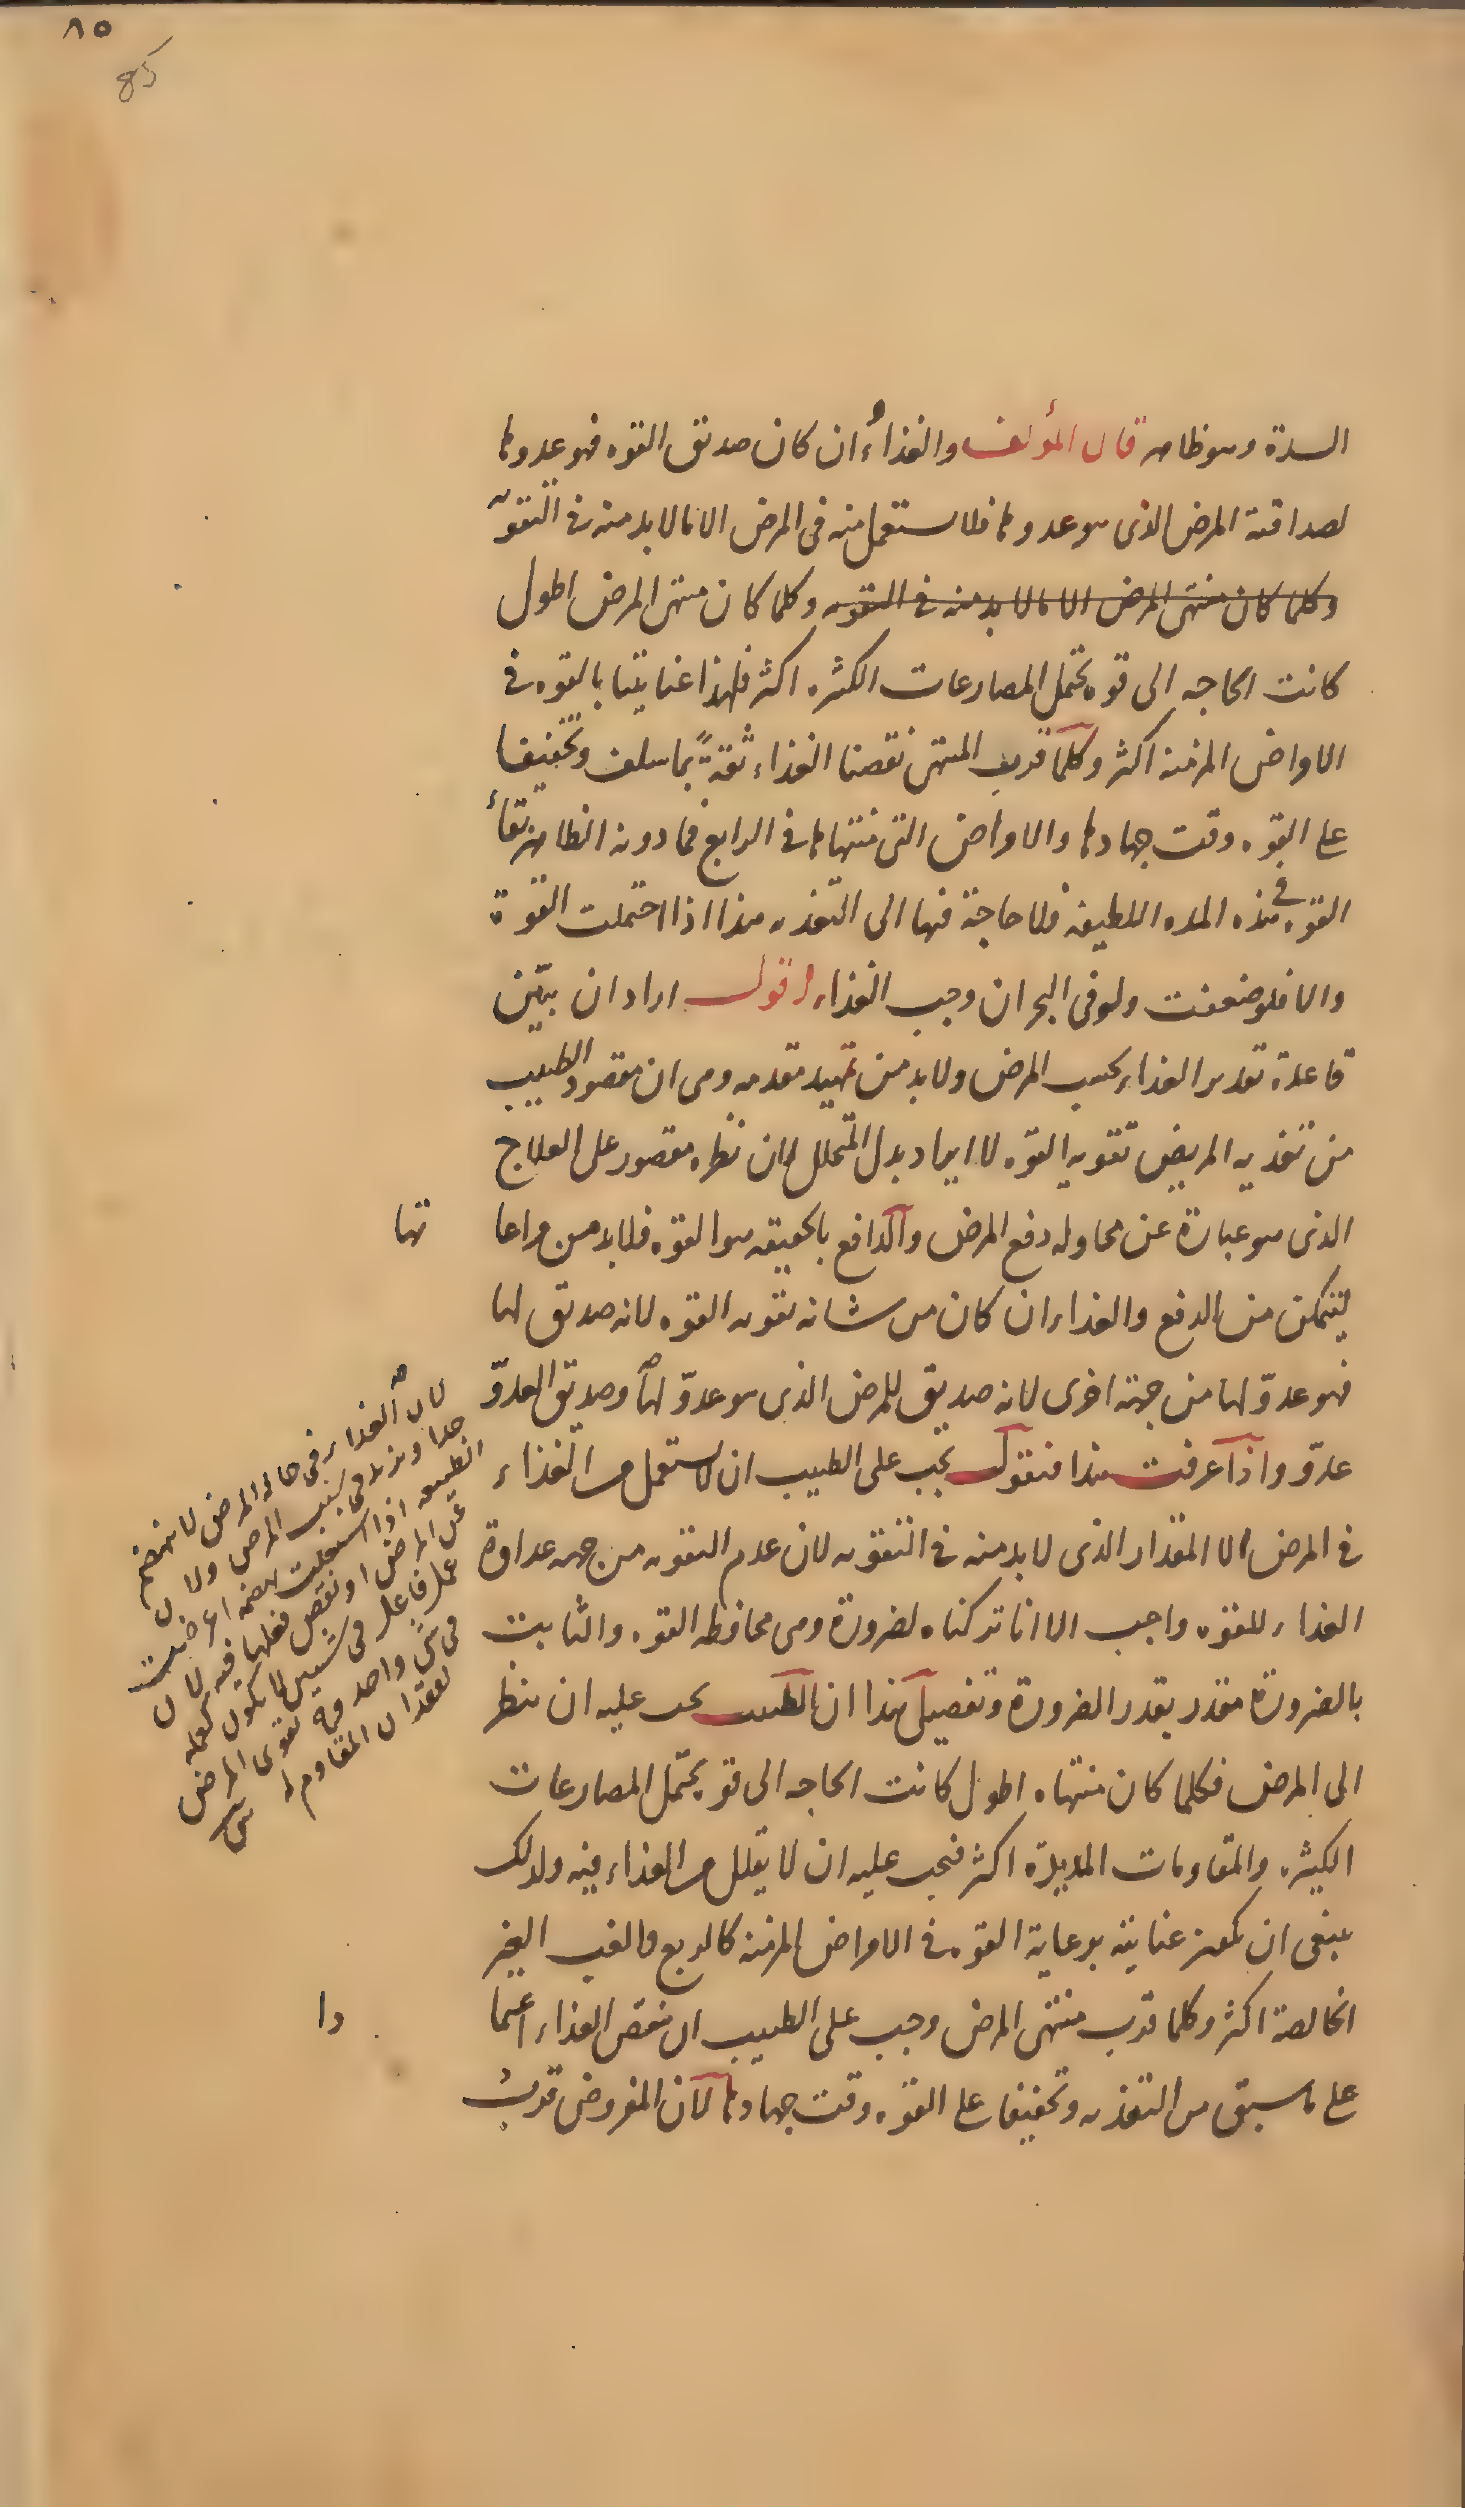 ٨٥
85
السدة وهو ظاهر قال المؤلف والغذاء وان كان صديق القوه فهو عدوها
لصداقته المرض الذى هو عدوها فلا يستعمل منه فى المرض الا ما لا بد منه فى التقويه
وكلما كان منتهى المرض الا ما لا بد منه فى التقويه وكلما كان منتهى المرض اطول
كانت الحاجه الى قوه تحتمل المصارعات الكثيره اكثر فلهذا عنايتنا بالقوه فى
الامراض المزمنه اكثر وكلما قرب المنتهى نقصنا الغذاء ثقةً بما سلف وتخفيفا
على القوه وقت جهادها والامراض التى منتهاها فى الرابع فما دونه الظاهر بقاء
القوه فى هذه المده اللطيفه فلا حاجة فيها الى التغذيه هذا اذا احتملت القوة
والا فلو ضعفت ولو فى البحران وجب الغذاء اقول اراد ان يبيّن
قاعدة تقدير الغذاء بحسب المرض ولا بد من تمهيد مقدمه وهى ان مقصود الطبيب
من تغذيه المريض تقويه القوّه لا ايجاد بدل المتحلل لان نظره مقصور على العلاج
الذى هو عبارة عن محاوله دفع المرض والدافع بالحقيقه هو القوه فلا بد من مراعا تها
ليتمكن من الدفع والغذاء ان كان من شانه تقويه القوه لانه صديق لها
فهو عدوّ لها من جهة اخرى لانه صديق للمرض الذى هو عدوّ لها وصديق العدوّ
عدوّ واذا عرفت هذا فنقول يجب على الطبيب ان لا يستعمل من الغذاء
فى المرض الا المقدار الذى لا بد منه فى التقويه لان عدم التقويه من جهه عداوة
الغذاء للقوه واجب الا انا تركناه لضرورة وهى محافظه القوه والثابت
بالضرورة مقدر بقدر الضرورة وتفصيل هذا ان الطبيب يجب عليه ان ينظر
الى المرض فكلما كان منتهاه اطول كانت الحاجه الى قوه يحتمل المصارعات
الكثيره والمقاومات المديدة اكثر فيجب عليه ان لا يقلل من الغذاء فيه ولذلك
ينبغى ان يكون عنايته برعاية القوه فى الامراض المزمنه كالربع والغب الغير
الخالصة اكثر وكلما قرب منتهى المرض وجب على الطبيب ان ينقص الغذاء اعتما دا
على ما سبق من التغذيه وتخفيفا على القوه وقت جهادها لان المفروض قرب
لان الغذاء فى حال المرض لا ينهضم
جدا ويزيد فى سبب المرض ولان
الطبيعه اذا اشتغلت بهضمه اعرضت
عن المرض او نقص فعلها فيه لان
عمل فاعل فى شيئين لا يكون كعمله
فى شئ واحد وح يقوى المرض
لفقدان المقاوم له